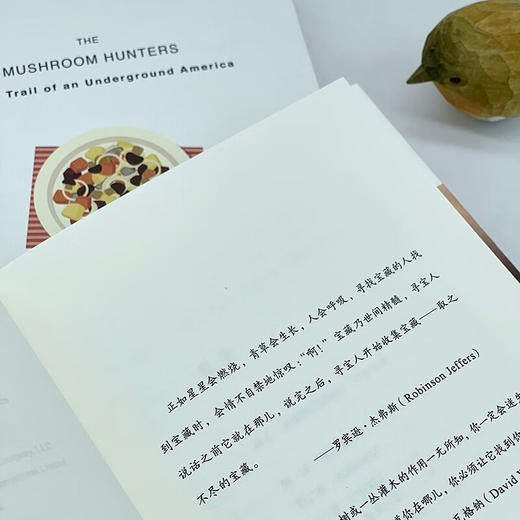 THE
MUSHROOM HUNTERS
Trail of an Underground America
正如星星会燃烧，青草会生长，人会呼吸，寻找宝藏的人找
到宝藏时，会情不自禁地惊叹：“啊！”宝藏乃世间精髓，寻宝人
说话之前它就在那儿，说完之后，寻宝人开始收集宝藏——取之
不尽的宝藏。
——罗宾逊·杰弗斯（Robinson Jeffers）
树或一丛灌木的作用一无所知，你一定会迷
道你在哪儿，你必须让它找到你
瓦格纳（David